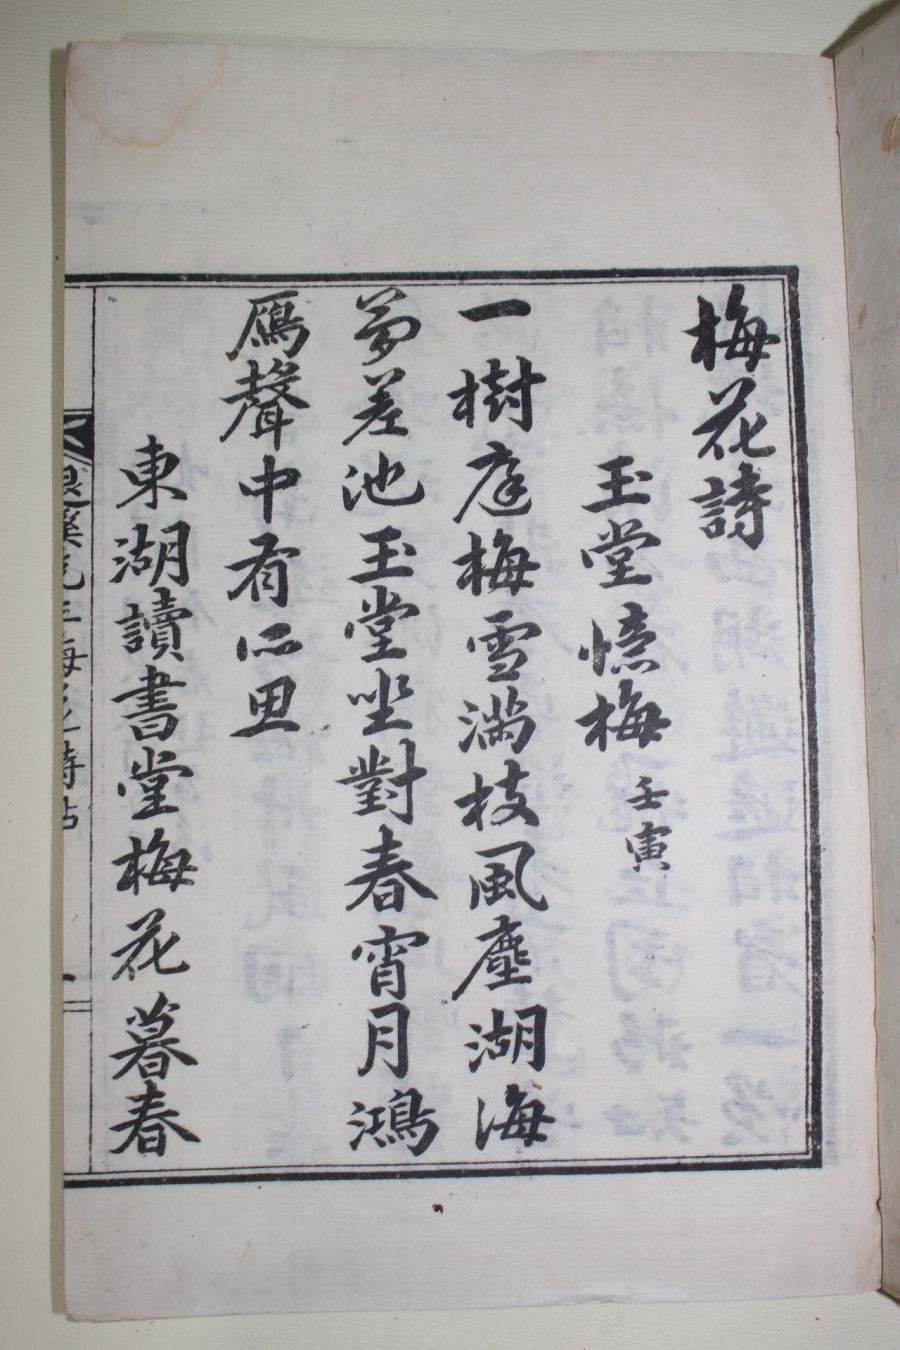 梅花詩
玉堂憶梅 壬寅
一樹庭梅雪滿枝風塵湖海
夢差池玉堂坐對春宵月鴻
鴈聲中有所思
東湖讀書堂梅花暮春
溪先生梅花詩帖